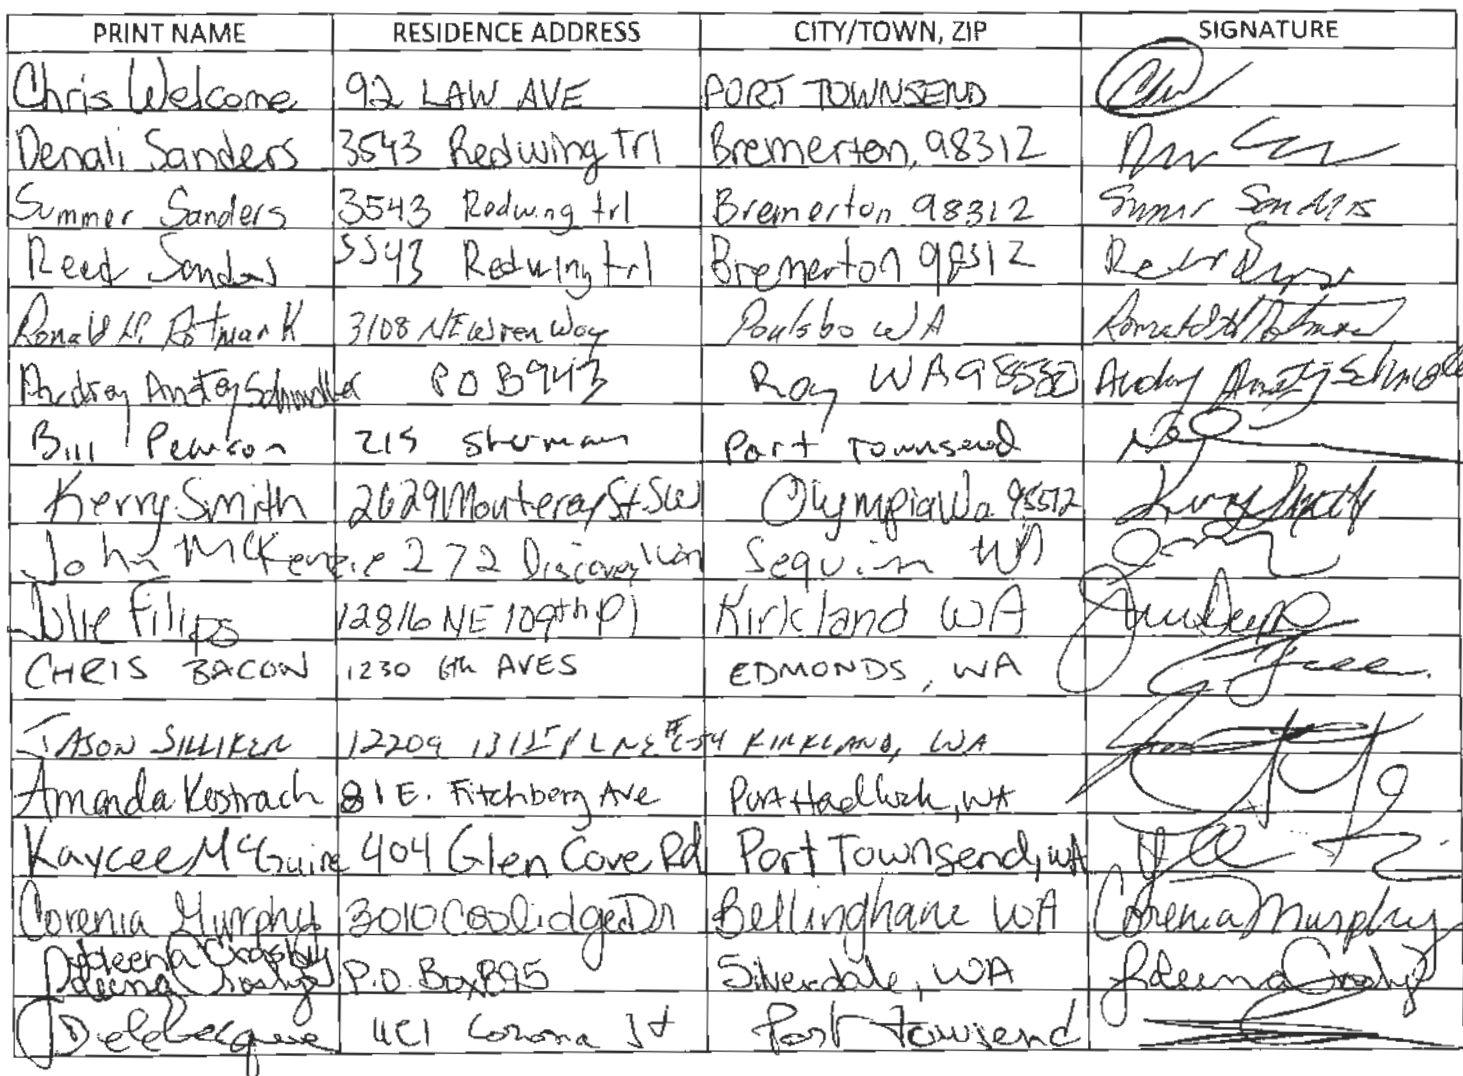 PRINT NAME RESIDENCE ADDRESS CITY/TOWN, ZIP SIGNATURE
Chris Welcome 92 LAW AVE PORT TOWNSEND
Denali Sanders 3543 Redwing Trl Bremerton, 98312
Summer Sanders 3543 Redwing trl Bremerton 98312 Summer Sanders
Reed Sanders 3543 Redwing trl Bremerton 98312
Ronald 3108 NE Wren Way Poulsbo WA
P O B 943 Roy WA
Bill Pearson 215 Sherman Port Townsend
Kerry Smith 2629 Monterey St. SW Olympia Wa 98512 Kerry Smith
John McKenzie 272 Discovery Sequim WA
Julie Filips 12816 NE 109th Pl Kirkland WA
CHRIS BACON 1230 6th AVE S EDMONDS, WA
JASON SILLIKER 12209 131ST PL NE KIRKLAND, WA
Amanda Kostrach 81 E. Fitchberg Ave Port Hadlock, WA
Kaycee McGuire 404 Glen Cove Rd Port Townsend, WA
Corenia Murphy 3010 Coolidge Dr Bellingham WA Corenia Murphy
Jdeena Crosby P.O. Box 895 Silverdale, WA Jdeena Crosby
J Delebecque Corona St Port Townsend